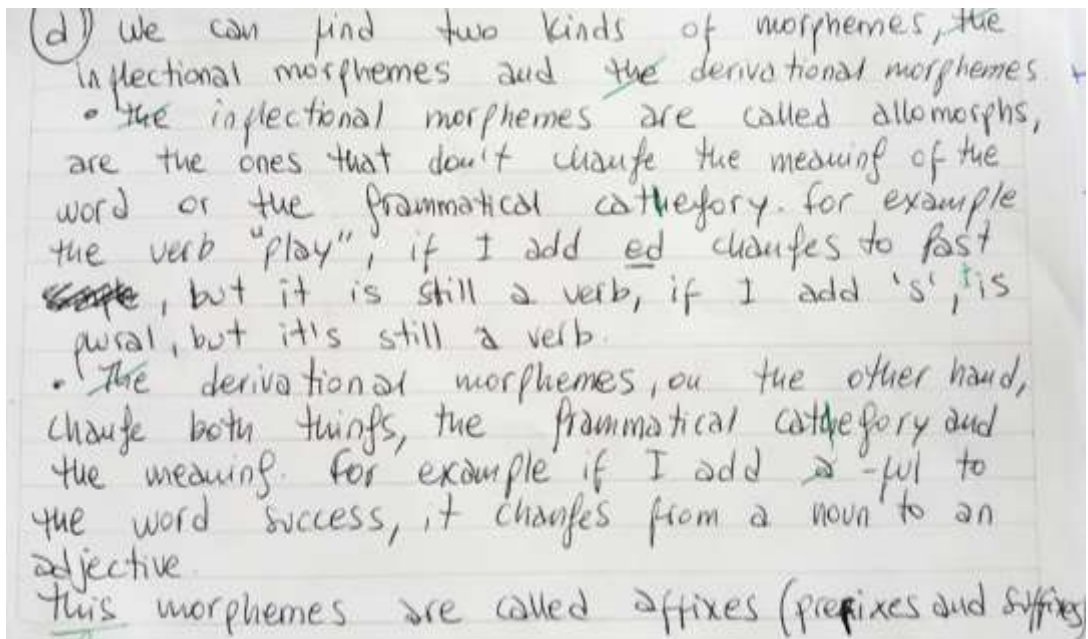 (d) We can find two kinds of morphemes, the
inflectional morphemes and the derivational morphemes
• the inflectional morphemes are called allomorphs,
are the ones that don't change the meaning of the
word or the grammatical cathegory. for example
the verb "play", if I add ed changes to past
, but it is still a verb, if I add 's', is
plural, but it's still a verb.
• The derivational morphemes, on the other hand,
change both things, the grammatical cathegory and
the meaning. for example if I add a -ful to
the word success, it changes from a noun to an
adjective.
this morphemes are called affixes (prefixes and suffixes